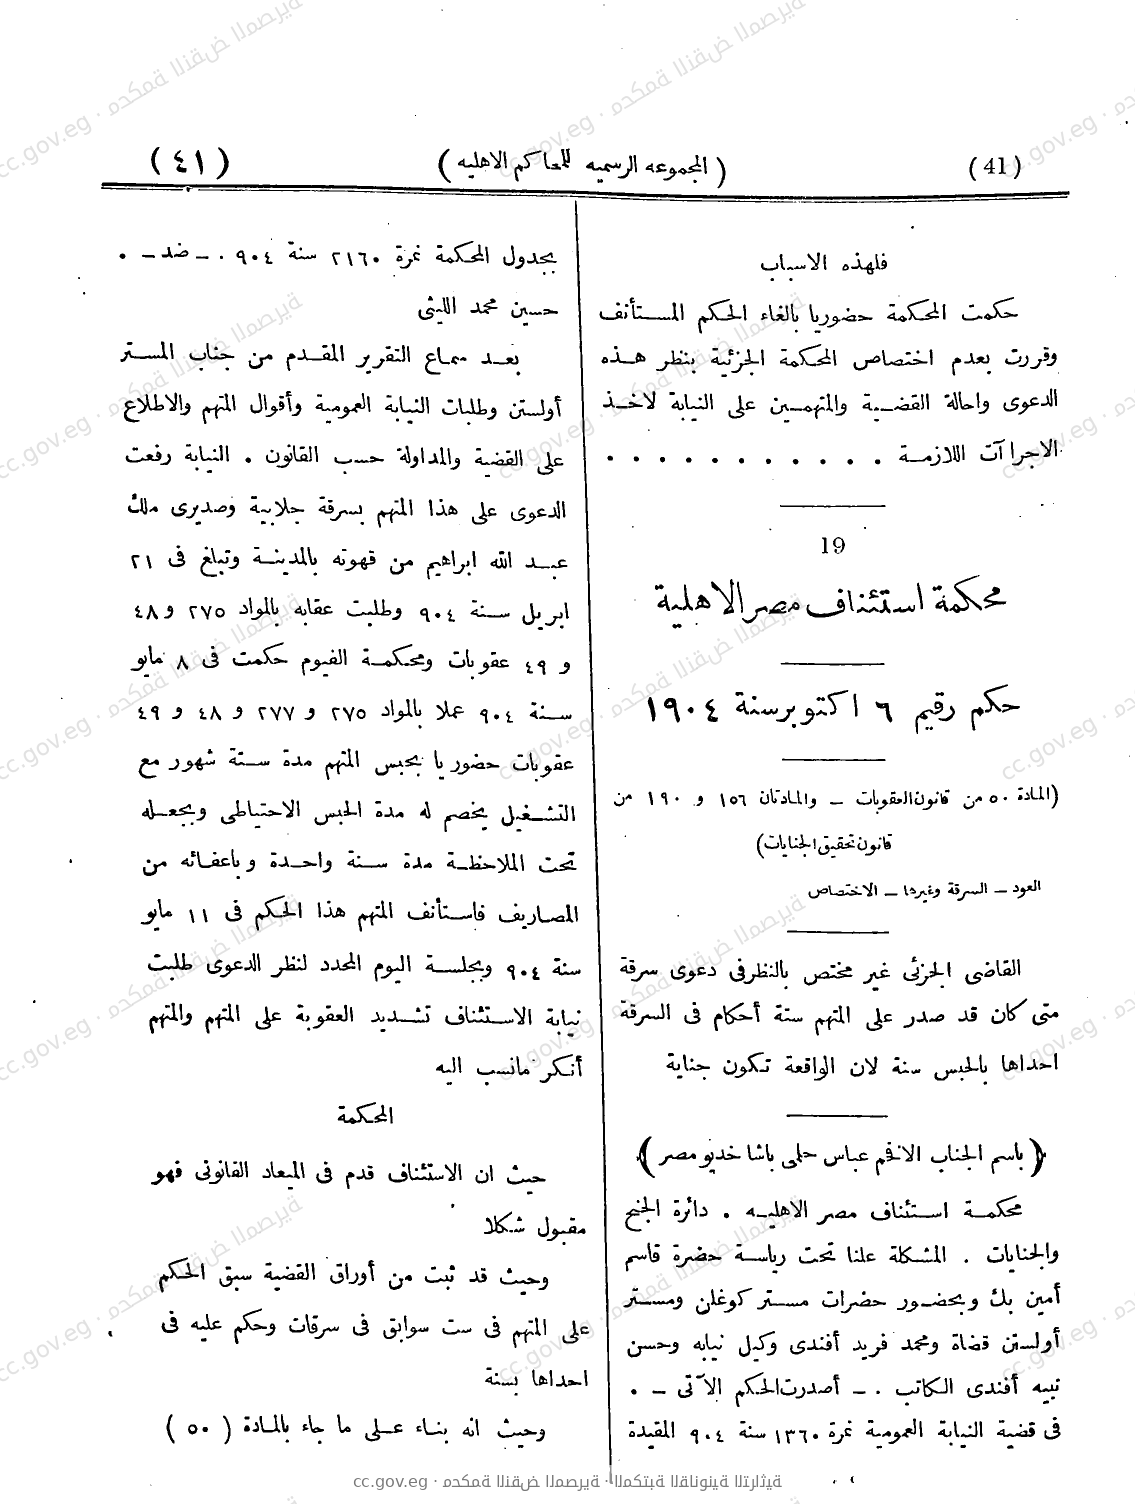 (41)
( المجموعه الرسميه للمحاكم الاهليه )
( ٤١ )
فلهذه الاسباب
حكمت المحكمة حضوريا بالغاء الحكم المستأنف
وقررت بعدم اختصاص المحكمة الجزئية بنظر هذه
الدعوى واحالة القضية والمتهمين على النيابة لاخذ
الاجراآت اللازمة . . . . . . . . . . .
19
محكمة استئناف مصر الاهلية
حكم رقيم ٦ اكتوبر سنة ١٩٠٤
(المادة ٥٠ من قانون العقوبات – والمادتان ١٥٦ و ١٩٠ من
قانون تحقيق الجنايات)
العود – السرقة وغيرها – الاختصاص
القاضى الجزئى غير مختص بالنظر فى دعوى سرقة
متى كان قد صدر على المتهم ستة أحكام فى السرقة
احداها بالحبس سنة لان الواقعة تكون جناية
( باسم الجناب الافخم عباس حلمى باشا خديو مصر )
محكمة استئناف مصر الاهليه . دائرة الجنح
والجنايات . المشكلة علنا تحت رياسة حضرة قاسم
أمين بك وبحضور حضرات مستر كوغلن ومستر
أولستن قضاة ومحمد فريد أفندى وكيل نيابه وحسن
نبيه أفندى الكاتب . – أصدرت الحكم الآتى – .
فى قضية النيابة العمومية نمرة ١٣٦٠ سنة ٩٠٤ المقيدة
بجدول المحكمة نمرة ٢١٦٠ سنة ٩٠٤ . – ضد – .
حسين محمد الليثى
بعد سماع التقرير المقدم من جناب المستر
أولستن وطلبات النيابة العمومية وأقوال المتهم والاطلاع
على القضية والمداولة حسب القانون . النيابة رفعت
الدعوى على هذا المتهم بسرقة جلابية وصديرى ملك
عبد الله ابراهيم من قهوته بالمدينة وتبلغ فى ٢١
ابريل سنة ٩٠٤ وطلبت عقابه بالمواد ٢٧٥ و ٤٨
و ٤٩ عقوبات ومحكمة الفيوم حكمت فى ٨ مايو
سنة ٩٠٤ عملا بالمواد ٢٧٥ و ٢٧٧ و ٤٨ و ٤٩
عقوبات حضوريا بحبس المتهم مدة ستة شهور مع
التشغيل يخصم له مدة الحبس الاحتياطى وبجعله
تحت الملاحظة مدة سنة واحدة وباعفائه من
المصاريف فاستأنف المتهم هذا الحكم فى ١١ مايو
سنة ٩٠٤ وبجلسة اليوم المحدد لنظر الدعوى طلبت
نيابة الاستئناف تشديد العقوبة على المتهم والمتهم
أنكر مانسب اليه
المحكمة
حيث ان الاستئناف قدم فى الميعاد القانونى فهو
مقبول شكلا
وحيث قد ثبت من أوراق القضية سبق الحكم
على المتهم فى ست سوابق فى سرقات وحكم عليه فى
احداها بسنة
وحيث انه بناء على ما جاء بالمادة ( ٥٠ )
cc.gov.eg · محكمة النقض المصرية · المكتبة القانونية التراثية